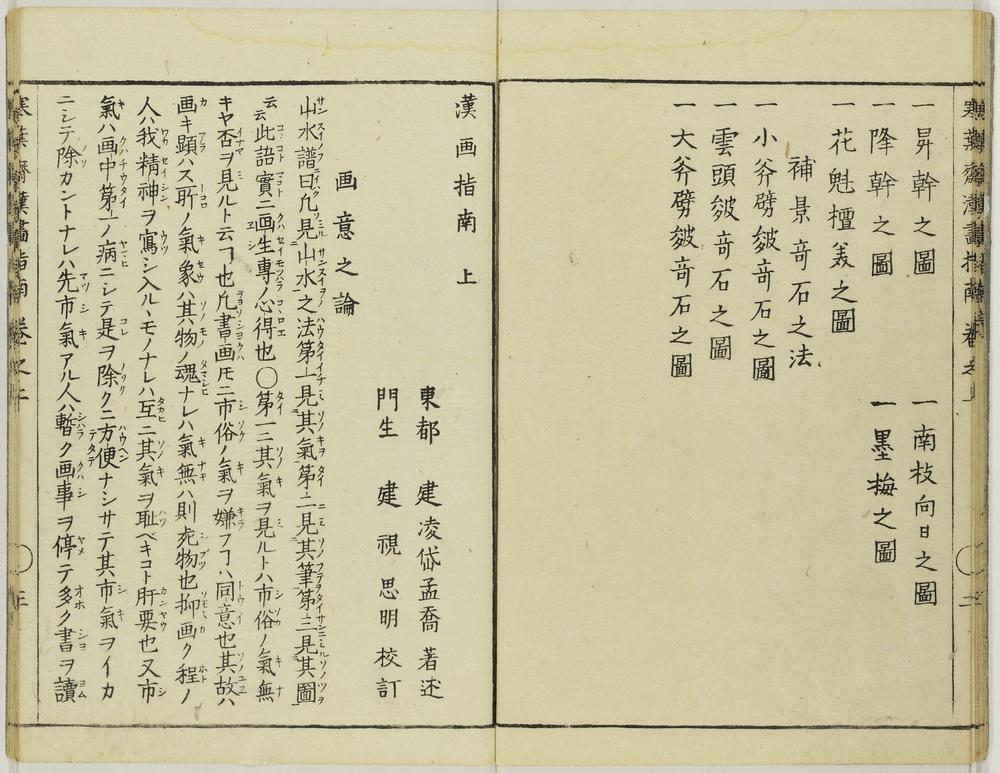 一昇幹之圖　一南枝向日之圖
一降幹之圖　一墨梅之圖
一花魁檀美之圖
補景竒石之法
一小斧劈皴竒石之圖
一雲頭皴竒石之圖
一大斧劈皴竒石之圖
漢画指南　上
東都　建凌岱孟喬著述
門生　建視思明校訂
画意之論
山水譜曰凢見山水之法第一見其氣第二見其筆第三見其圖
云云此語實ニ画生專ノ心得也〇第一ニ其氣ヲ見ルトハ市俗ノ氣無
キヤ否ヲ見ルト云ヿ也凢書画𪜈ニ市俗ノ氣ヲ嫌フヿハ同意也其故ハ
画キ顕ハス所ノ氣象ハ其物ノ魂ナレハ氣無ハ則死物也抑画ク程ノ
人ハ我精神ヲ寫シ入ルヽモノナレハ互ニ其氣ヲ耻ベキコト肝要也又市
氣ハ画中第一ノ病ニシテ是ヲ除クニ方便ナシサテ其市氣ヲイカ
ニシテ除カントナレハ先市氣アル人ハ暫ク画事ヲ停テ多ク書ヲ讀